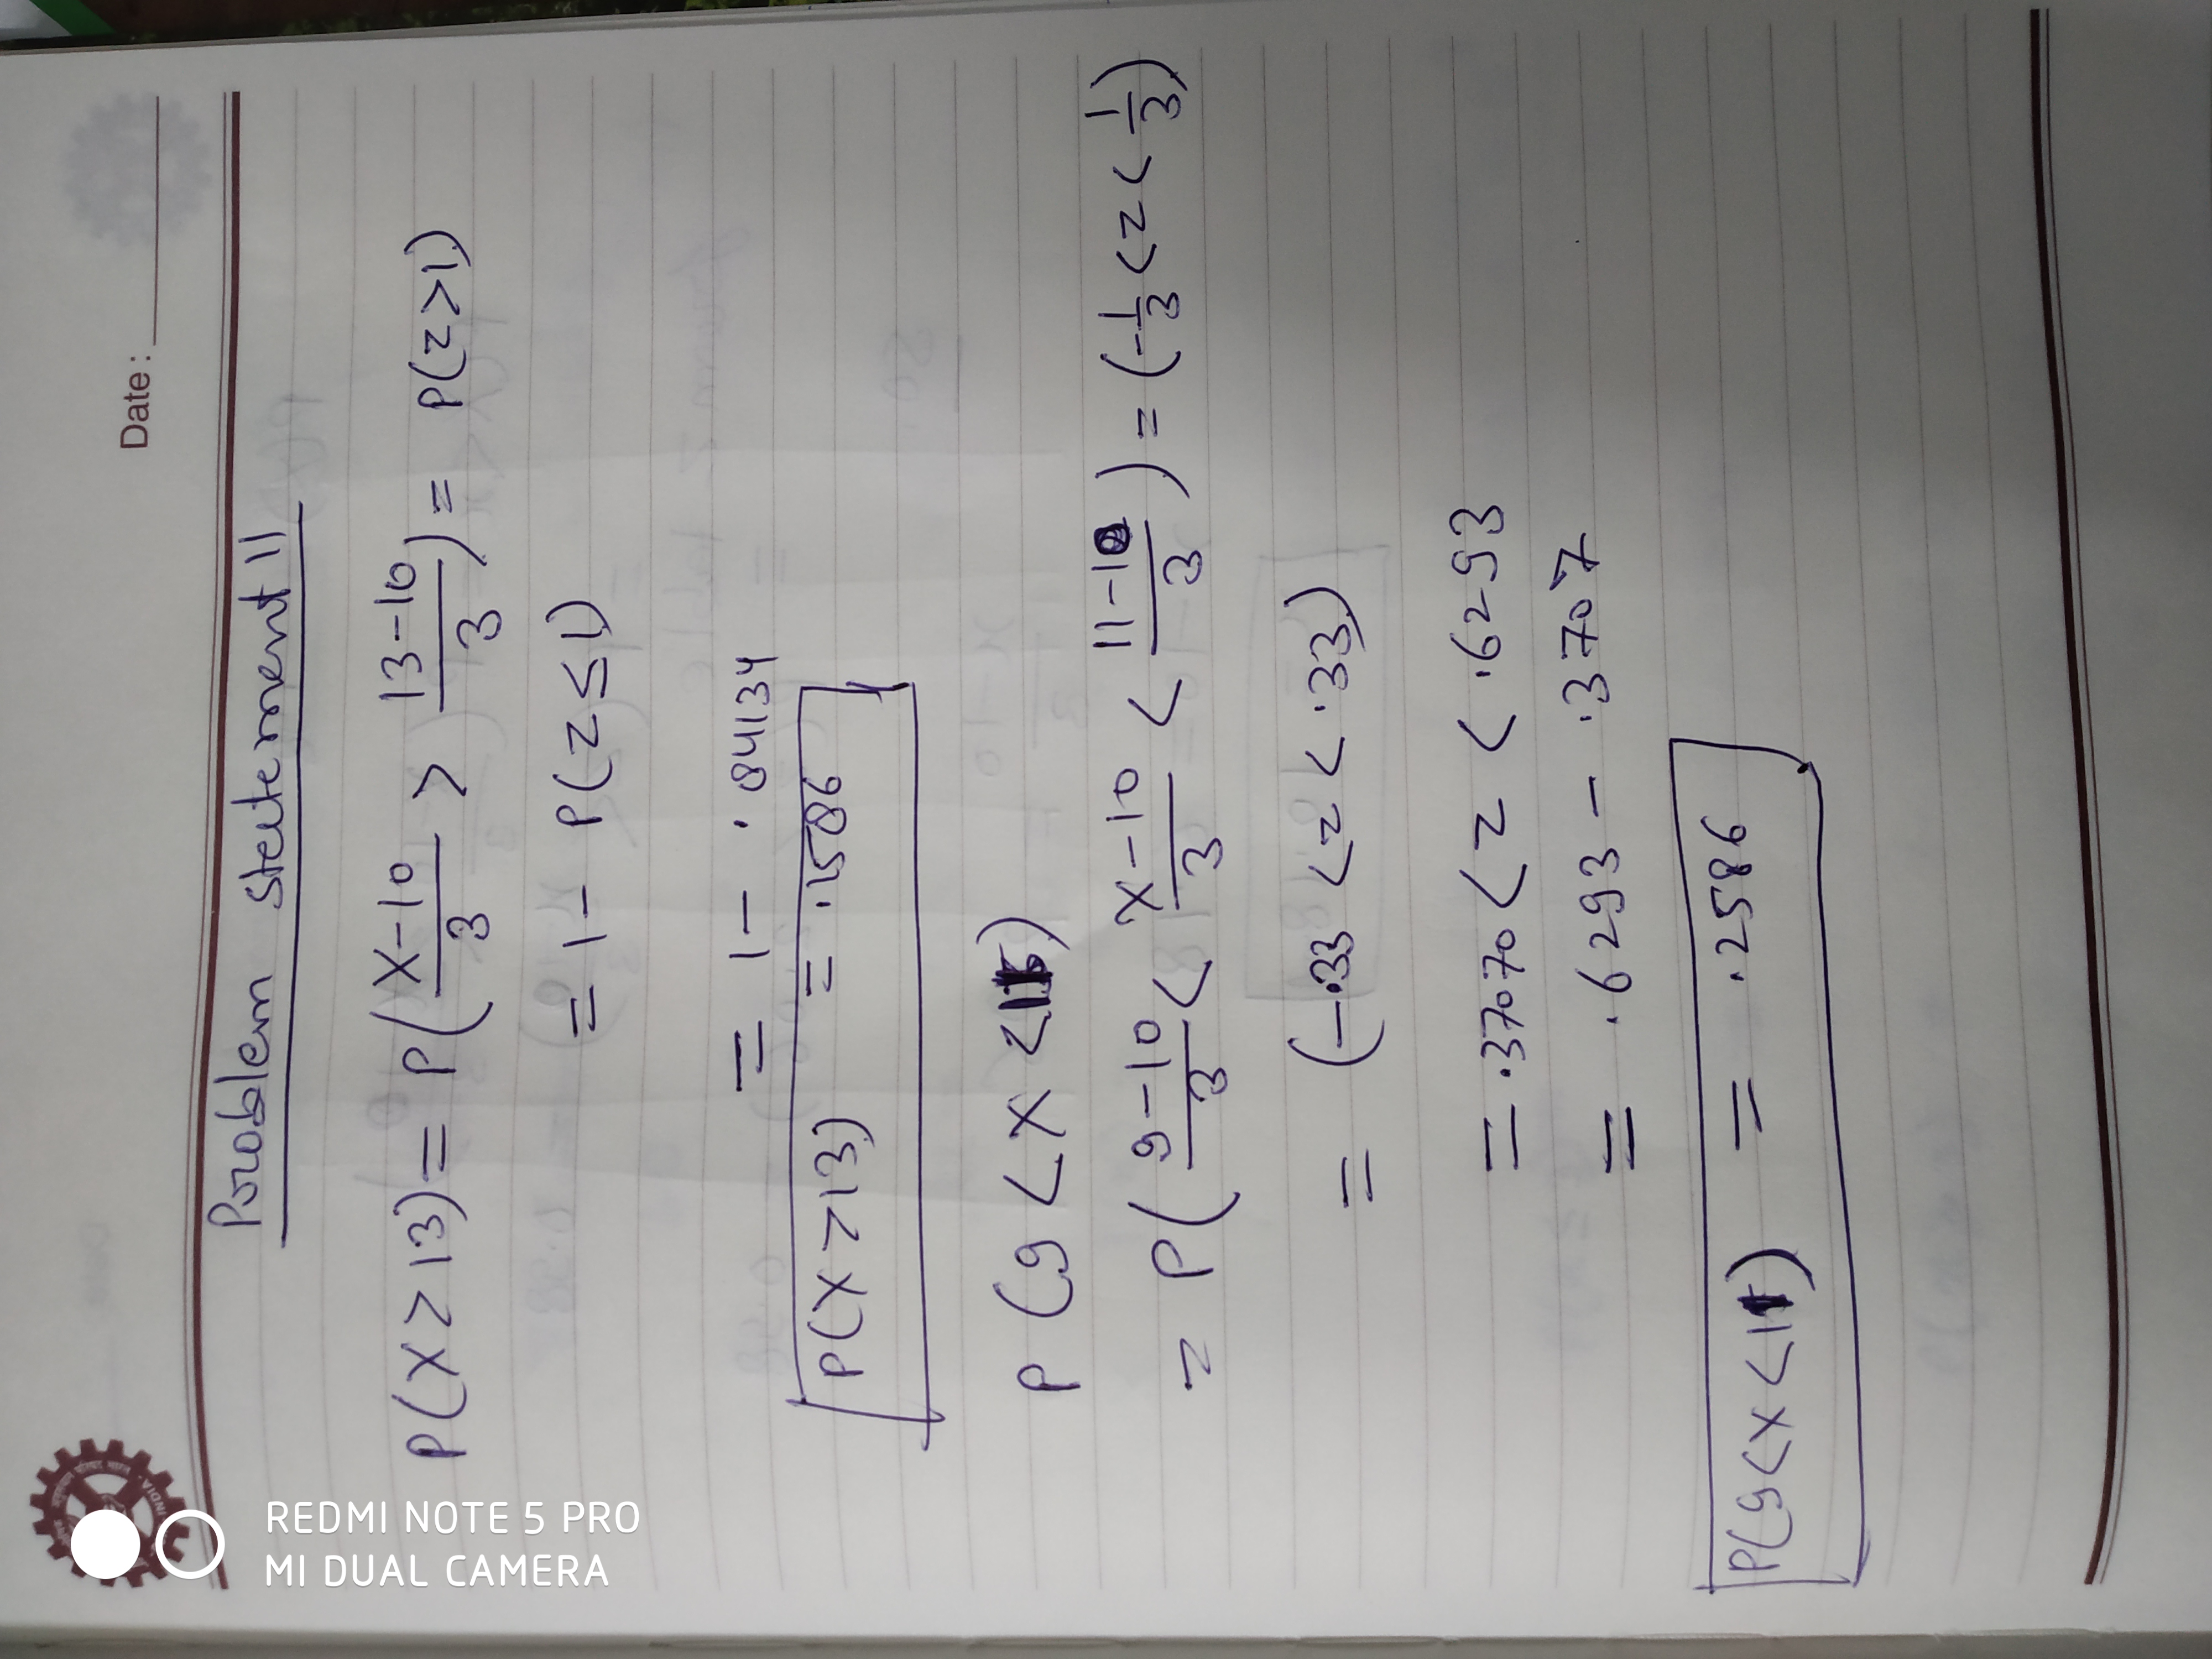 Date:
Problem statement 11
P(X>13) = P(X-10/3 > 13-10/3) = P(z>1)
= 1 - P(z≤1)
= 1 - .84134
P(X>13) = .1586
P(9<X<11)
= P(9-10/3 < X-10/3 < 11-10/3) = (-1/3<z<1/3)
= (-.33<z<.33)
= .3707<z<.6293
= .6293 - .3707
P(9<X<11) = .2586
REDMI NOTE 5 PRO
MI DUAL CAMERA